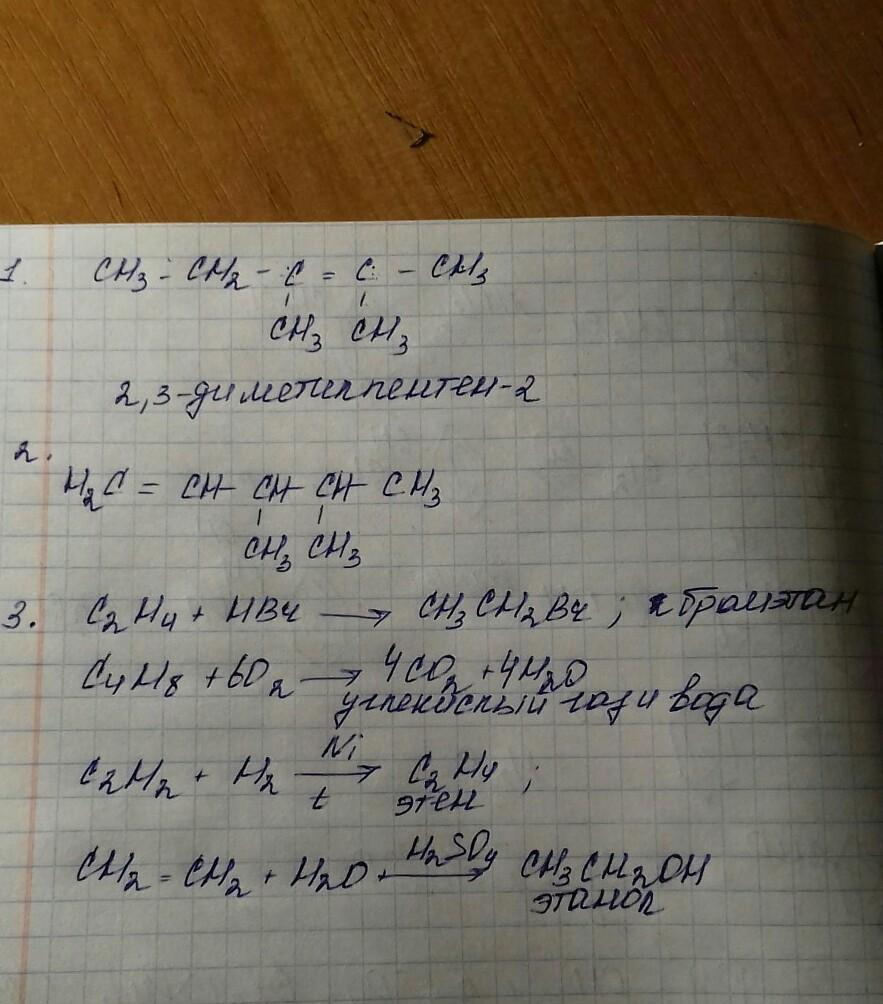 1. CH3 - CH2 - C = C - CH3
CH3 CH3
2,3-диметилпентен-2
2.
H2C = CH - CH - CH - CH3
CH3 CH3
3. C2H4 + HBr → CH3CH2Br ; бромэтан
C4H8 + 6O2 → 4CO2 + 4H2O
углекислый газ и вода
Ni
C2H2 + H2 → C2H4 ;
t этен
H2SO4
CH2 = CH2 + H2O → CH3CH2OH
этанол